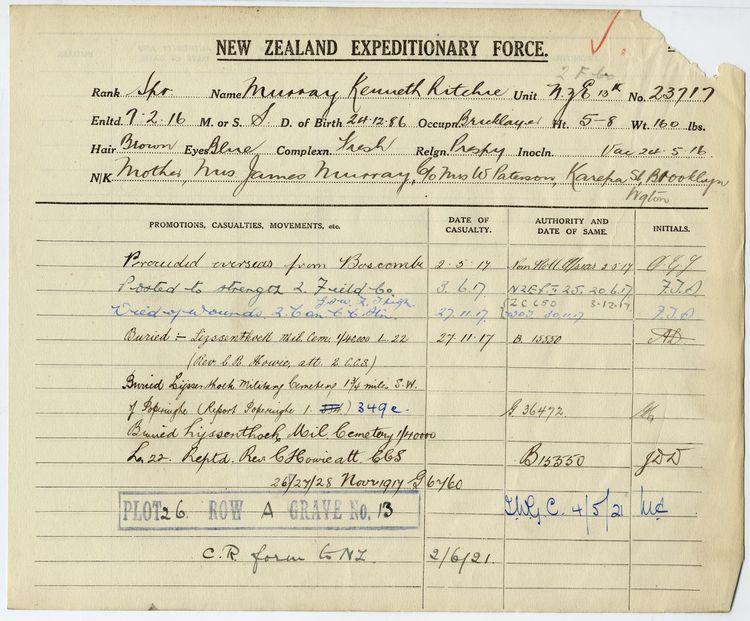 NEW ZEALAND EXPEDITIONARY FORCE.
2 F Co
Rank Spr Name Murray Kenneth Ritchie Unit N.Z.E 13th No. 23717
Enltd. 7.2.16 M. or S. S D. of Birth 24.12.86 Occupn. Bricklayer Ht. 5-8 Wt. 160 lbs.
Hair Brown Eyes Blue Complexn. Fresh Relgn. Presby Inocln. Vac 24.5.16.
N/K Mother, Mrs James Murray, C/o Mrs W Paterson, Karepa St, Brooklyn
Wgton
PROMOTIONS, CASUALTIES, MOVEMENTS, etc. DATE OF CASUALTY. AUTHORITY AND DATE OF SAME. INITIALS.
Proceeded overseas from Boscombe 2.5.17 2.5.17
Posted to strength 2 Field Co. 3.6.17. NZEF II 25. 20.6.17 F.J.A
G.S.W. L Thigh 2C650 3.12.17
Died of wounds 2 Can C C Stn. 27.11.17 30.11.17 F.J.A
Buried :- Lijssenthoek Mil. Cem. 1/40000 L.22 27.11.17 B 15550
(Rev. C.B. Howie, att. 2 C.C.S)
Buried Lijssenthoek Military Cemetery 1¾ miles S.W.
of Poperinghe (Report Poperinghe 1. ) 349c. G. 36472.
Buried Lijssenthoek Mil Cemetery 1/40000
L.22. Reptd. Rev. C Howie att. CCS B15550 JDD
26/27/28 Novr 1917 G6760
PLOT 26 ROW A GRAVE No. 13
I.W.G.C. 4/5/21
C.R. form to NZ. 2/6/21.